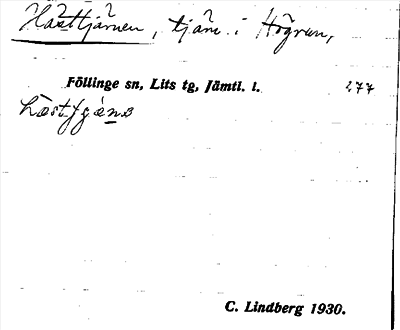 Hästtjärnen, tjärn i Högrun,
Föllinge sn, Lits tg, Jämtl. l.
C. Lindberg 1930.